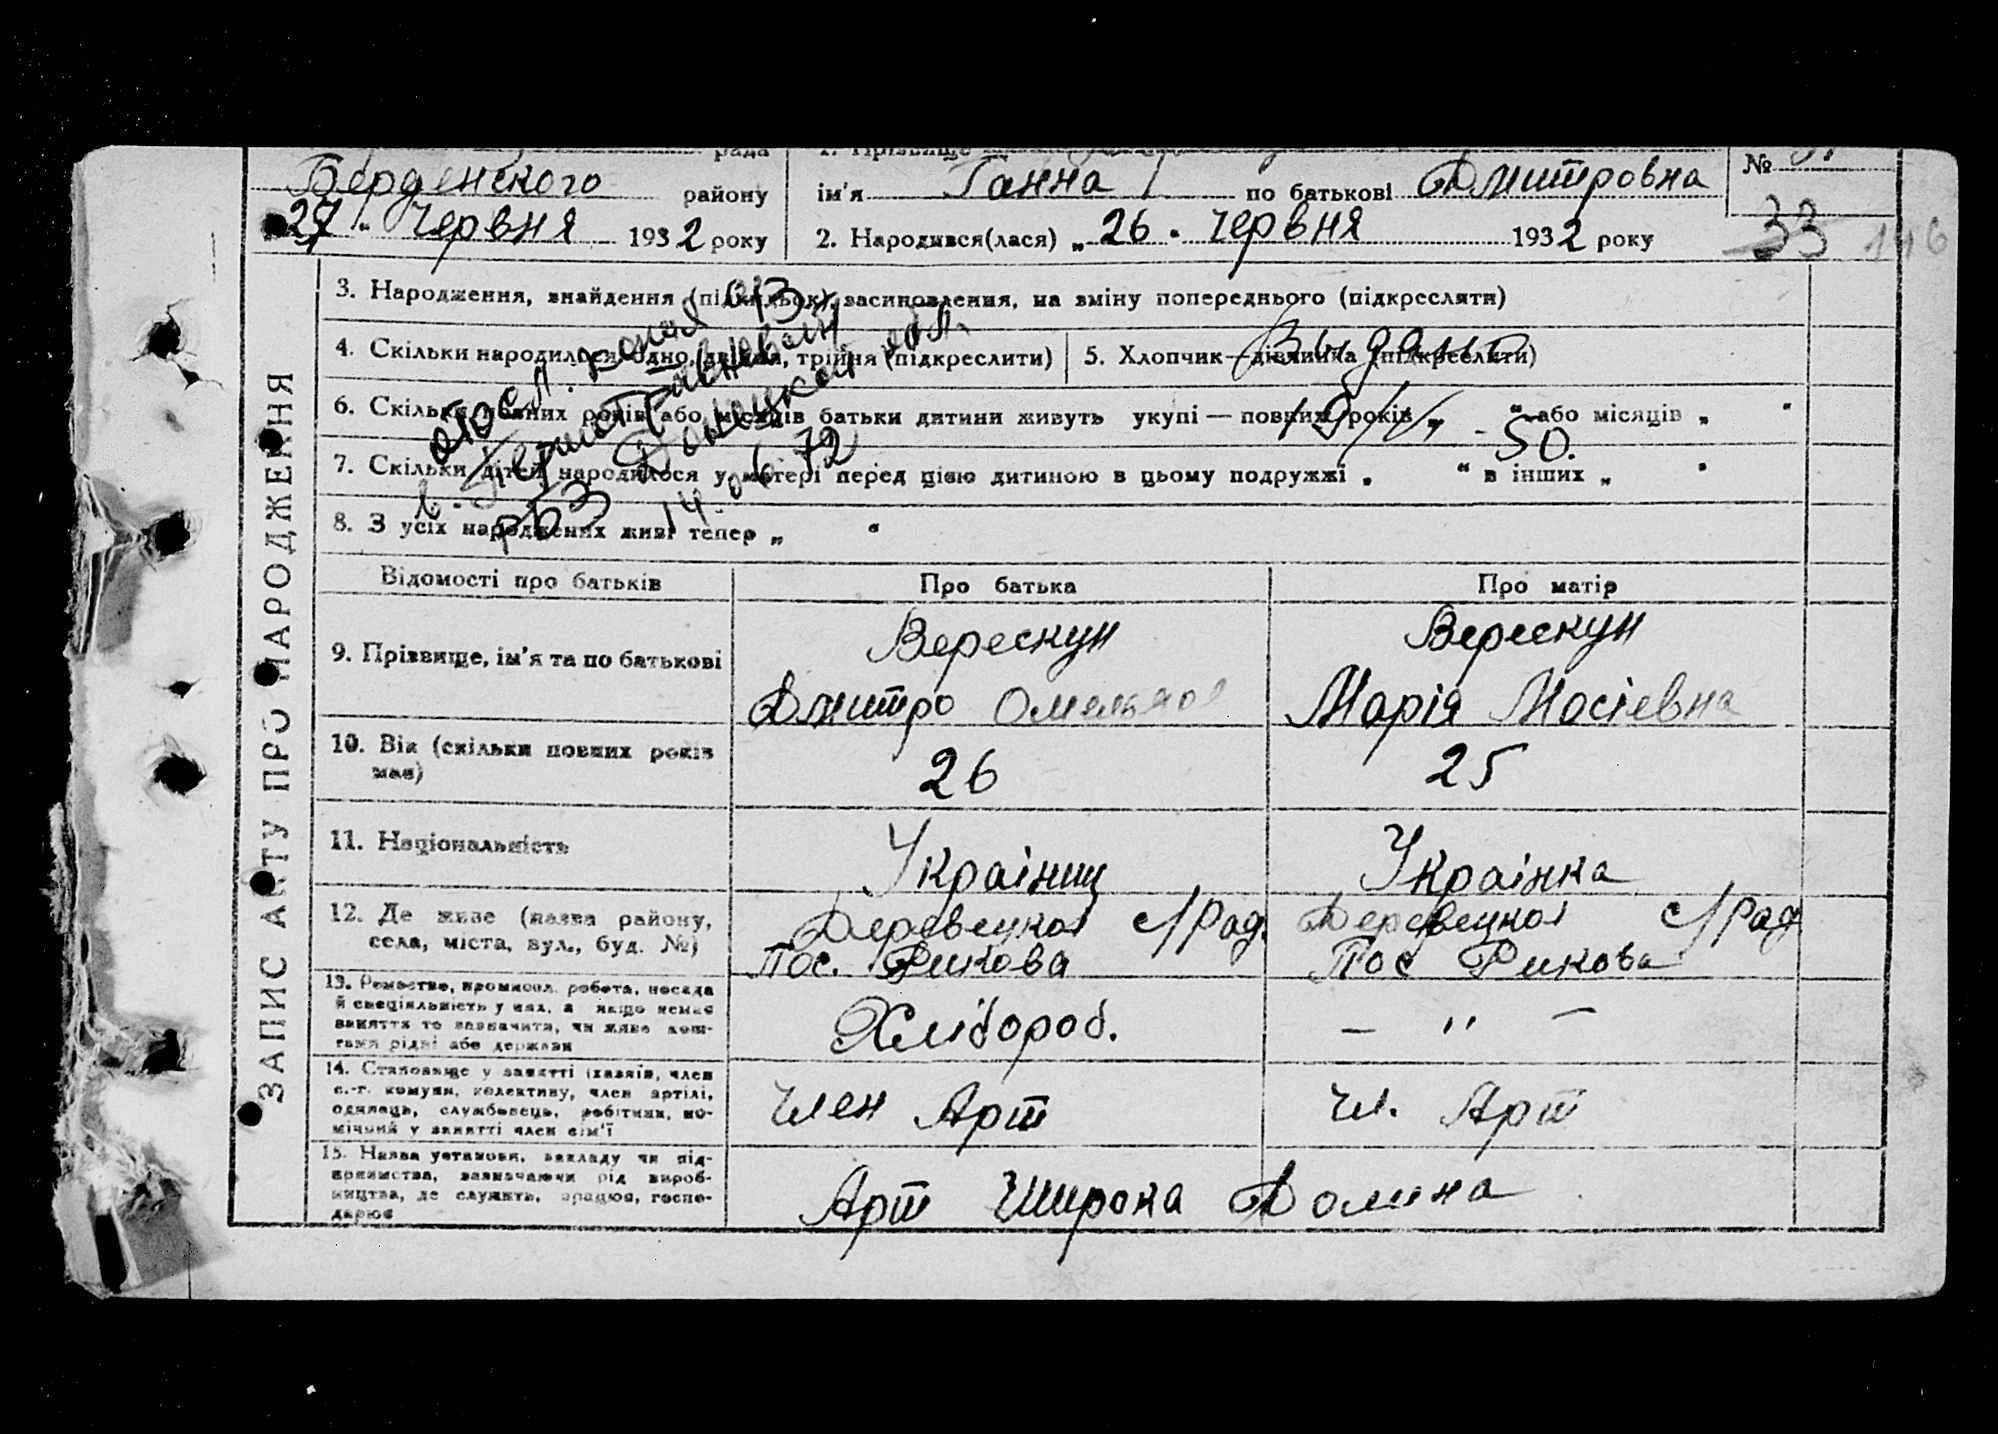 рада 1. Прізвище №
Берденского району ім'я Ганна по батькові Дмитровна
27 Червня 1932 року 2. Народився(лася) „26. Червня 1932 року 33 146
ЗАПИС АКТУ ПРО НАРОДЖЕННЯ
3. Народження, знайдення (підкидьок), засиновлення, на зміну попереднього (підкреслити)
4. Скільки народилося: одно, двійня, трійня (підкреслити) 5. Хлопчик—дівчинка (підкреслити)
Выдано
6. Скільки повних років або місяців батьки дитини живуть укупі — повних років „ “ або місяців „ “
7. Скільки дітей народилося у матері перед цією дитиною в цьому подружжі „ “ в інших „ “
50.
8. З усіх народжених живі тепер „ “
14.06.72
Відомості про батьків Про батька Про матір
9. Прізвище, ім'я та по батькові Верескун Верескун
Дмитро Марія Мосіевна
10. Вік (скільки повних років має) 26 25
11. Національність Україниц Українка
12. Де живе (назва району, села, міста, вул., буд. №) с/Рад. с/Рад
Пос. Рикова Пос Рикова
13. Ремество, промисел, робота, посада
й спеціяльність у них, а якщо немає
заняття то зазначити, чи живе кош-
тами рідні або держави
Хлібороб. — " —
14. Становище у занятті (хазяїн, член
с.-г. комуни, колективу, член артілі,
одинець, службовець, робітник, по-
мічний у занятті член сім'ї
член Арт чл. Арт
15. Назва установи, закладу чи під-
приємства, зазначаючи рід вироб-
ництва, де служить, працює, госпо-
дарює
Арт Широка Долина